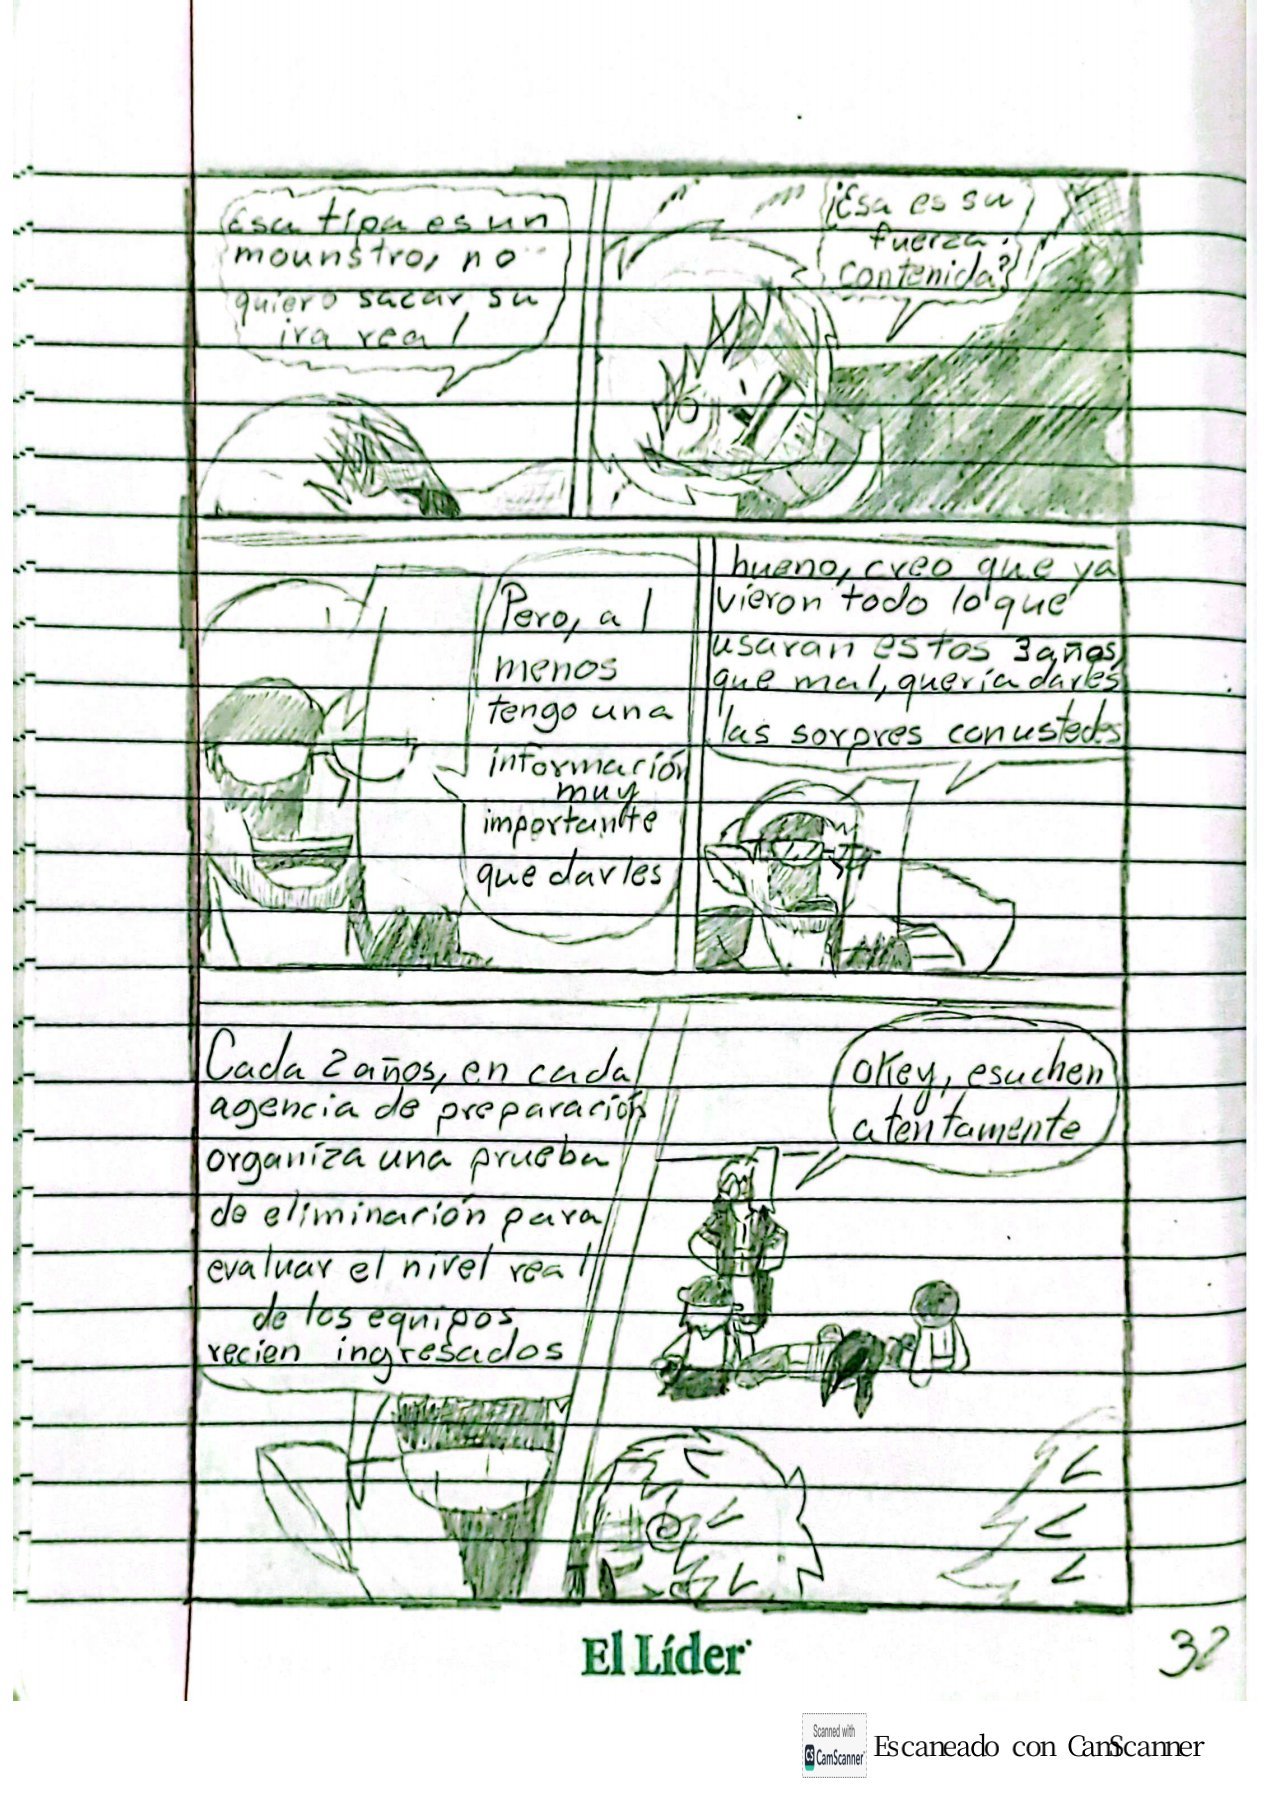 Esa tipa es un
mounstro, no
quiero sacar su
ira real
¡Esa es su
fuerza
contenida?
Pero, al
menos
tengo una
información
muy
importante
que darles
bueno, creo que ya
vieron todo lo que
usaran estos 3 años,
que mal, quería darles
las sorpres con ustedes
Cada 2 años, en cada
agencia de preparación
organiza una prueba
de eliminación para
evaluar el nivel real
de los equipos
recien ingresados
okey, esuchen
atentamente
El Líder
32
Scanned with
CS CamScanner
Escaneado con CamScanner